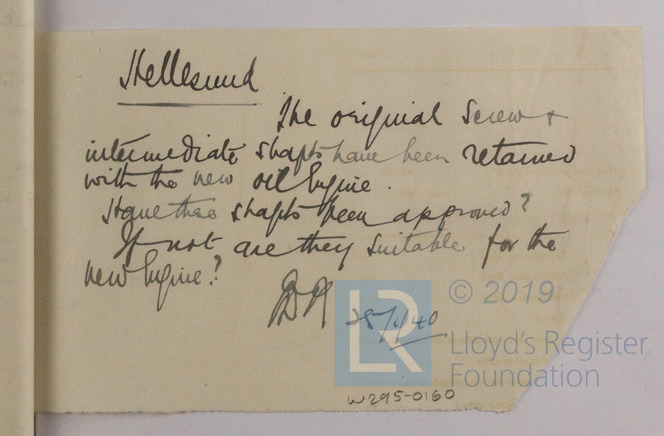 Hellesund
The original screw &
intermediate shafts have been retained
with the new oil Engine.
Have these shafts been approved?
If not are they suitable for the
new Engine?
25/1/40
LR
© 2019
Lloyd's Register
Foundation
W295-0160